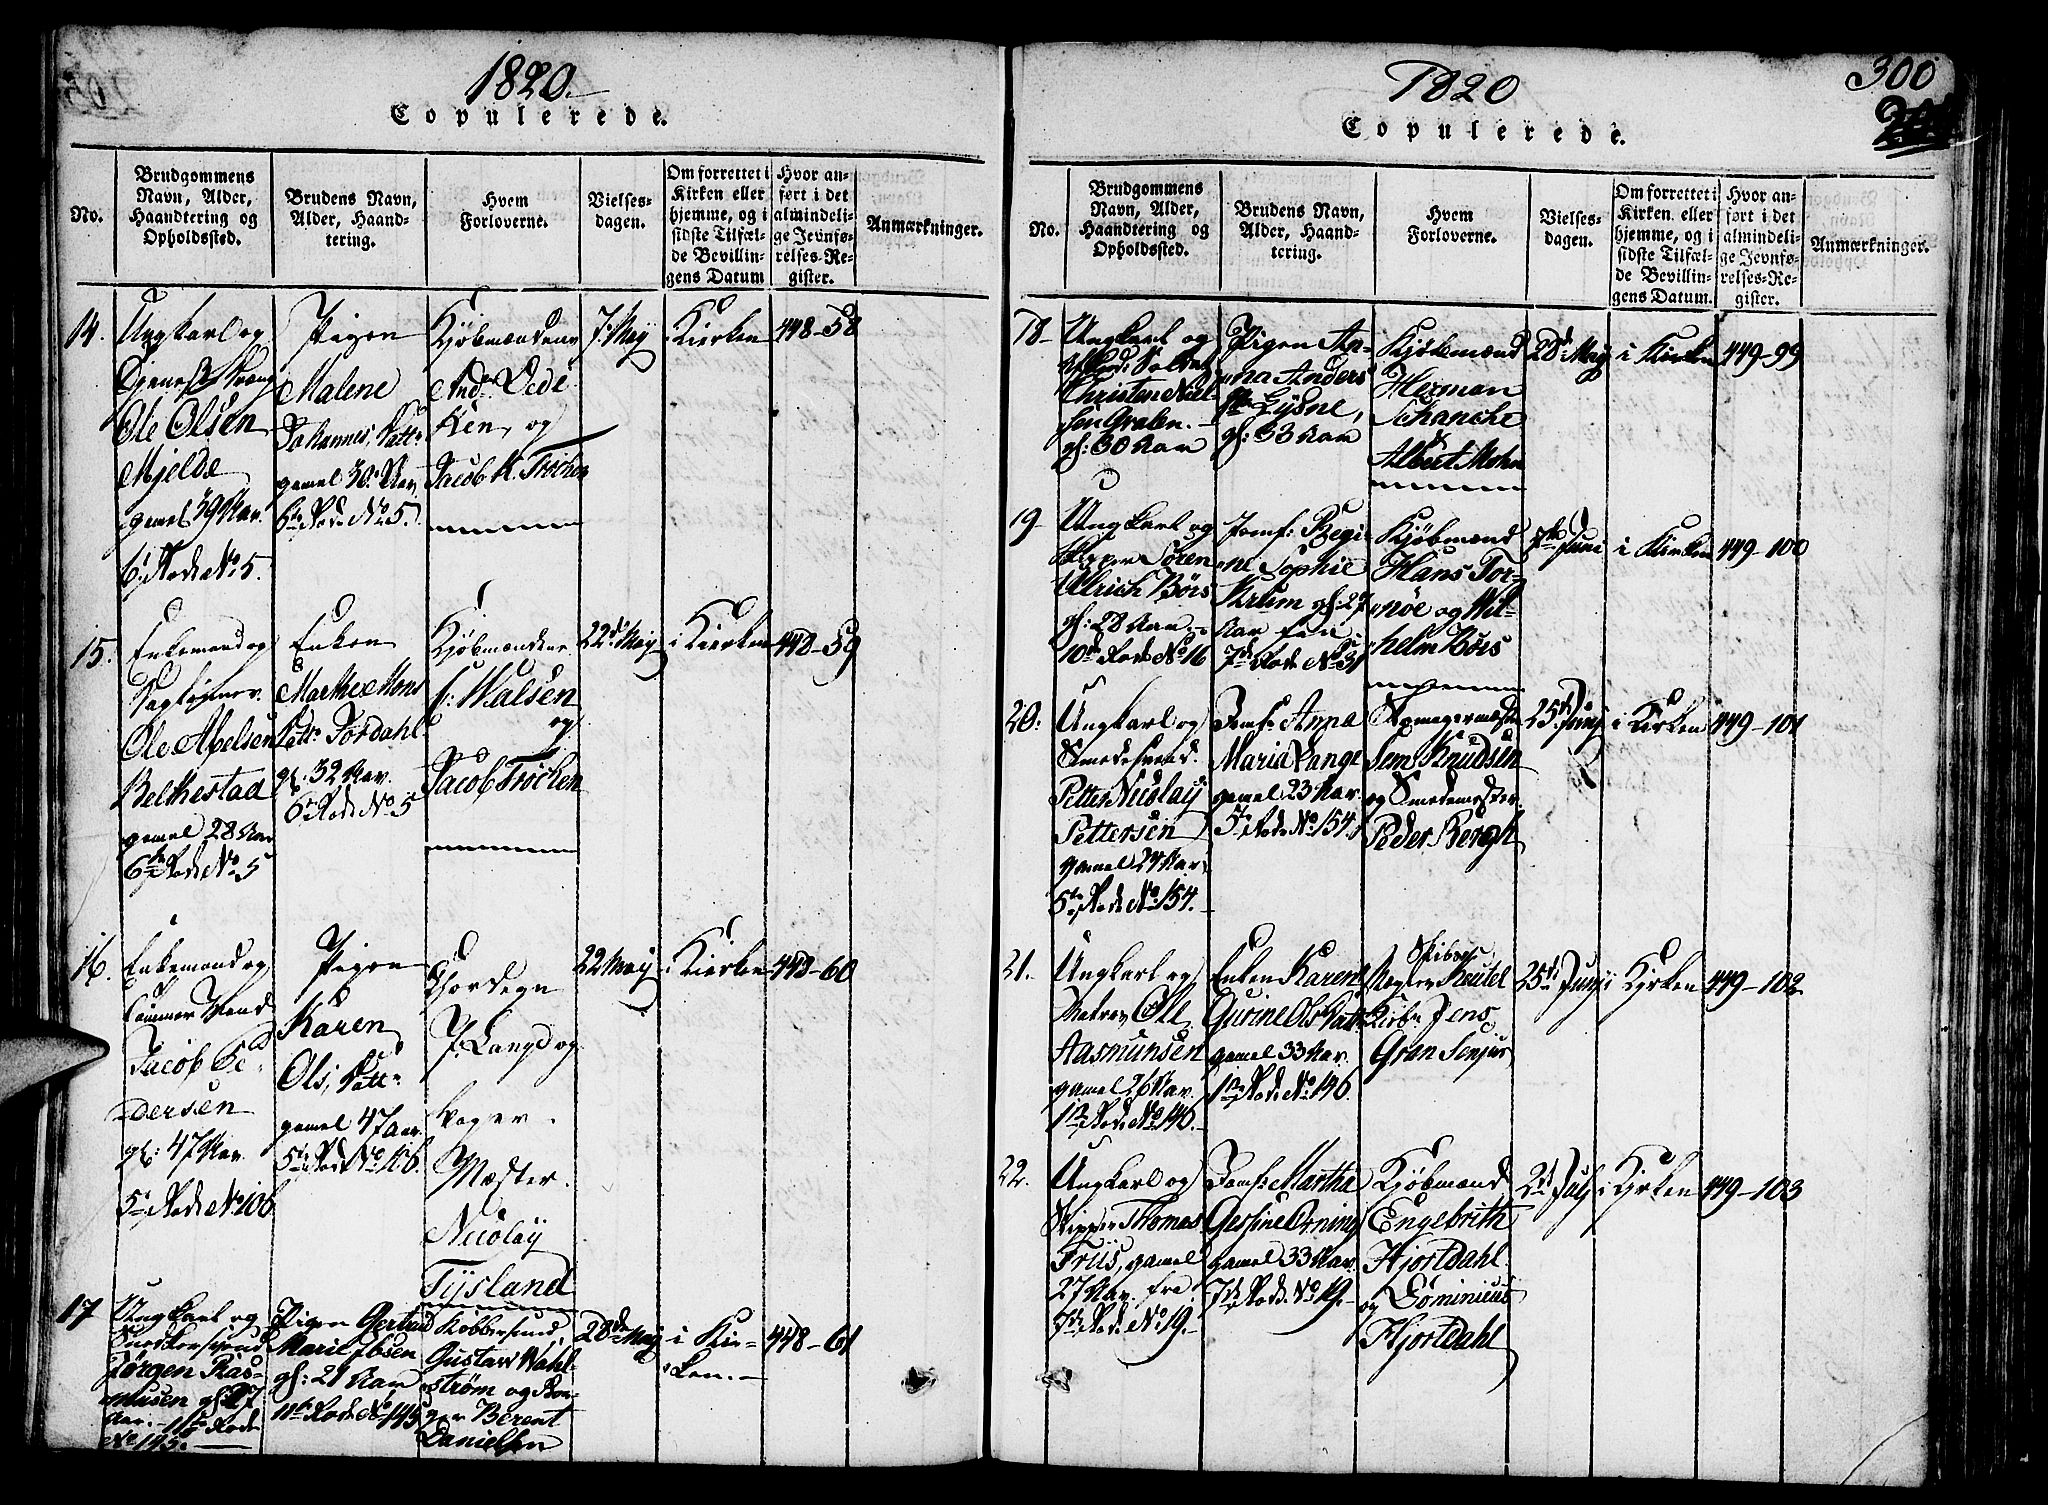 1820.
Copulerede.
No.
Brudgommens
Navn, Alder,
Haandtering og
Opholdssted.
Brudens Navn,
Alder, Haand-
tering.
Hvem
Forloverne.
Vielses-
dagen.
Om forrettet i
Kirken eller
hjemme, og i
sidste Tilfæl-
de Bevillin-
gens Datum
Hvor an-
ført i det
almindeli-
ge Jevnfø-
relses-Re-
gister.
Anmærkninger.
14.
Ungkarl og
Ole Olsen
Mjelde
gamel 39 Aar.
6te Rode No 5.
Pigen
Malene
Johannes Datt:
gamel 30 Aar,
6te Rode No 5.
Kjøbmændene
And: Dede
Ken, og
Jacob K. Trochen
7. May
i Kierken
448-58
15.
Enkemand og
Ole Abelsen
Belkestad
gamel 28 Aar
6te Rode No 5
Enken
Marthe Mons
Datt: Tordahl
gl: 32 Aar.
6te Rode No 5
Kjøbmændene
J: Walsen
og
Jacob Trochen
22de May
i Kierken
448-59
16.
Enkemand og
Tømmer Svend
Jacob Pe-
dersen
gl: 47 Aar.
5te Rode No 106
Pigen
Karen
Ols: Datt:
gamel 47 aar.
5te Rode No 106.
Chordegn
J: Lang og
bager.
Mæster.
Nicolay
Tysland
22 May
i Kierken
448-60
17
Ungkarl og
Snedkersvend
Jørgen Ras-
musen gl: 27
Aar. - 11te Rode
No 145.
Pigen Gertrud
Marie Ibsen
gl: 21 Aar
11te Rode No 145
Kobbersmed
Gustav Wahl-
strøm og Bor-
ger Berent
Danielsen
28de May
i Kir-
ken.-
448-61
1820
300
Copulerede.
No.
Brudgommens
Navn, Alder,
Haandtering og
Opholdssted.
Brudens Navn,
Alder, Haand-
tering.
Hvem
Forloverne.
Vielses-
dagen.
Om forrettet i
Kirken eller
hjemme, og i
sidste Tilfæl-
de Bevillin-
gens Datum.
Hvor an-
ført i det
almindeli-
ge Jevnfø-
relses-Re-
gister.
Anmærkninger.
18-
Ungkarl og
Christen Niel-
sen Gralen.-
gl: 30 Aar
Pigen An-
na Anders
Lysne,
gl: 33 Aar
Kjøbmænd
Herman
Schancke
Albert Mohn
28de May
i Kirken
449-99
19
Ungkarl og
Skipper Søren
Ulrich Børs
gl: 28 Aar.-
10de Rode No 16
Jomf: Regi-
ne Sophie
Krum gl: 27
Aar
7de Rode No 31
Kjøbmænd
Hans Tor-
nøe og Wil-
helm Børs
7de Juni
i Kirken
449-100
20.
Ungkarl og
Smedesvend.
Petter Nicolay
Pettersen
gamel 24 Aar.
5te Rode No 154.
Jomf: Anna
Maria Lange
gamel 23 Aar.
5te Rode No 154.
Skomagermæster
Sem Knudsen
og Smedemester.
Peder Bergh
25de Juny
i Kirken
449-101
21.
Ungkarl og
Matros Ole
Aasmunsen
gamel 26 Aar.
1te Rode No 146.
Enken Karen
Gurine Ols Datt:
gamel 33 Aar.
1te Rode No 146.
Skibs
Mægler Reutel
Jens
Gran Senjur
25de Juny
i Kjrken
449-102
22.
Ungkarl og
Skipper Thomas
Friis, gamel
27 Aar.
7de Rode No 19.
Jomf: Martha
Gesfine Orning
gamel 33 Aar.
7de Rode No 19.-
Kjøbmænd
Engebrith
Hjortdahl.
og Dominicus
Hjortdahl
2de July
i Kjrken
449-103